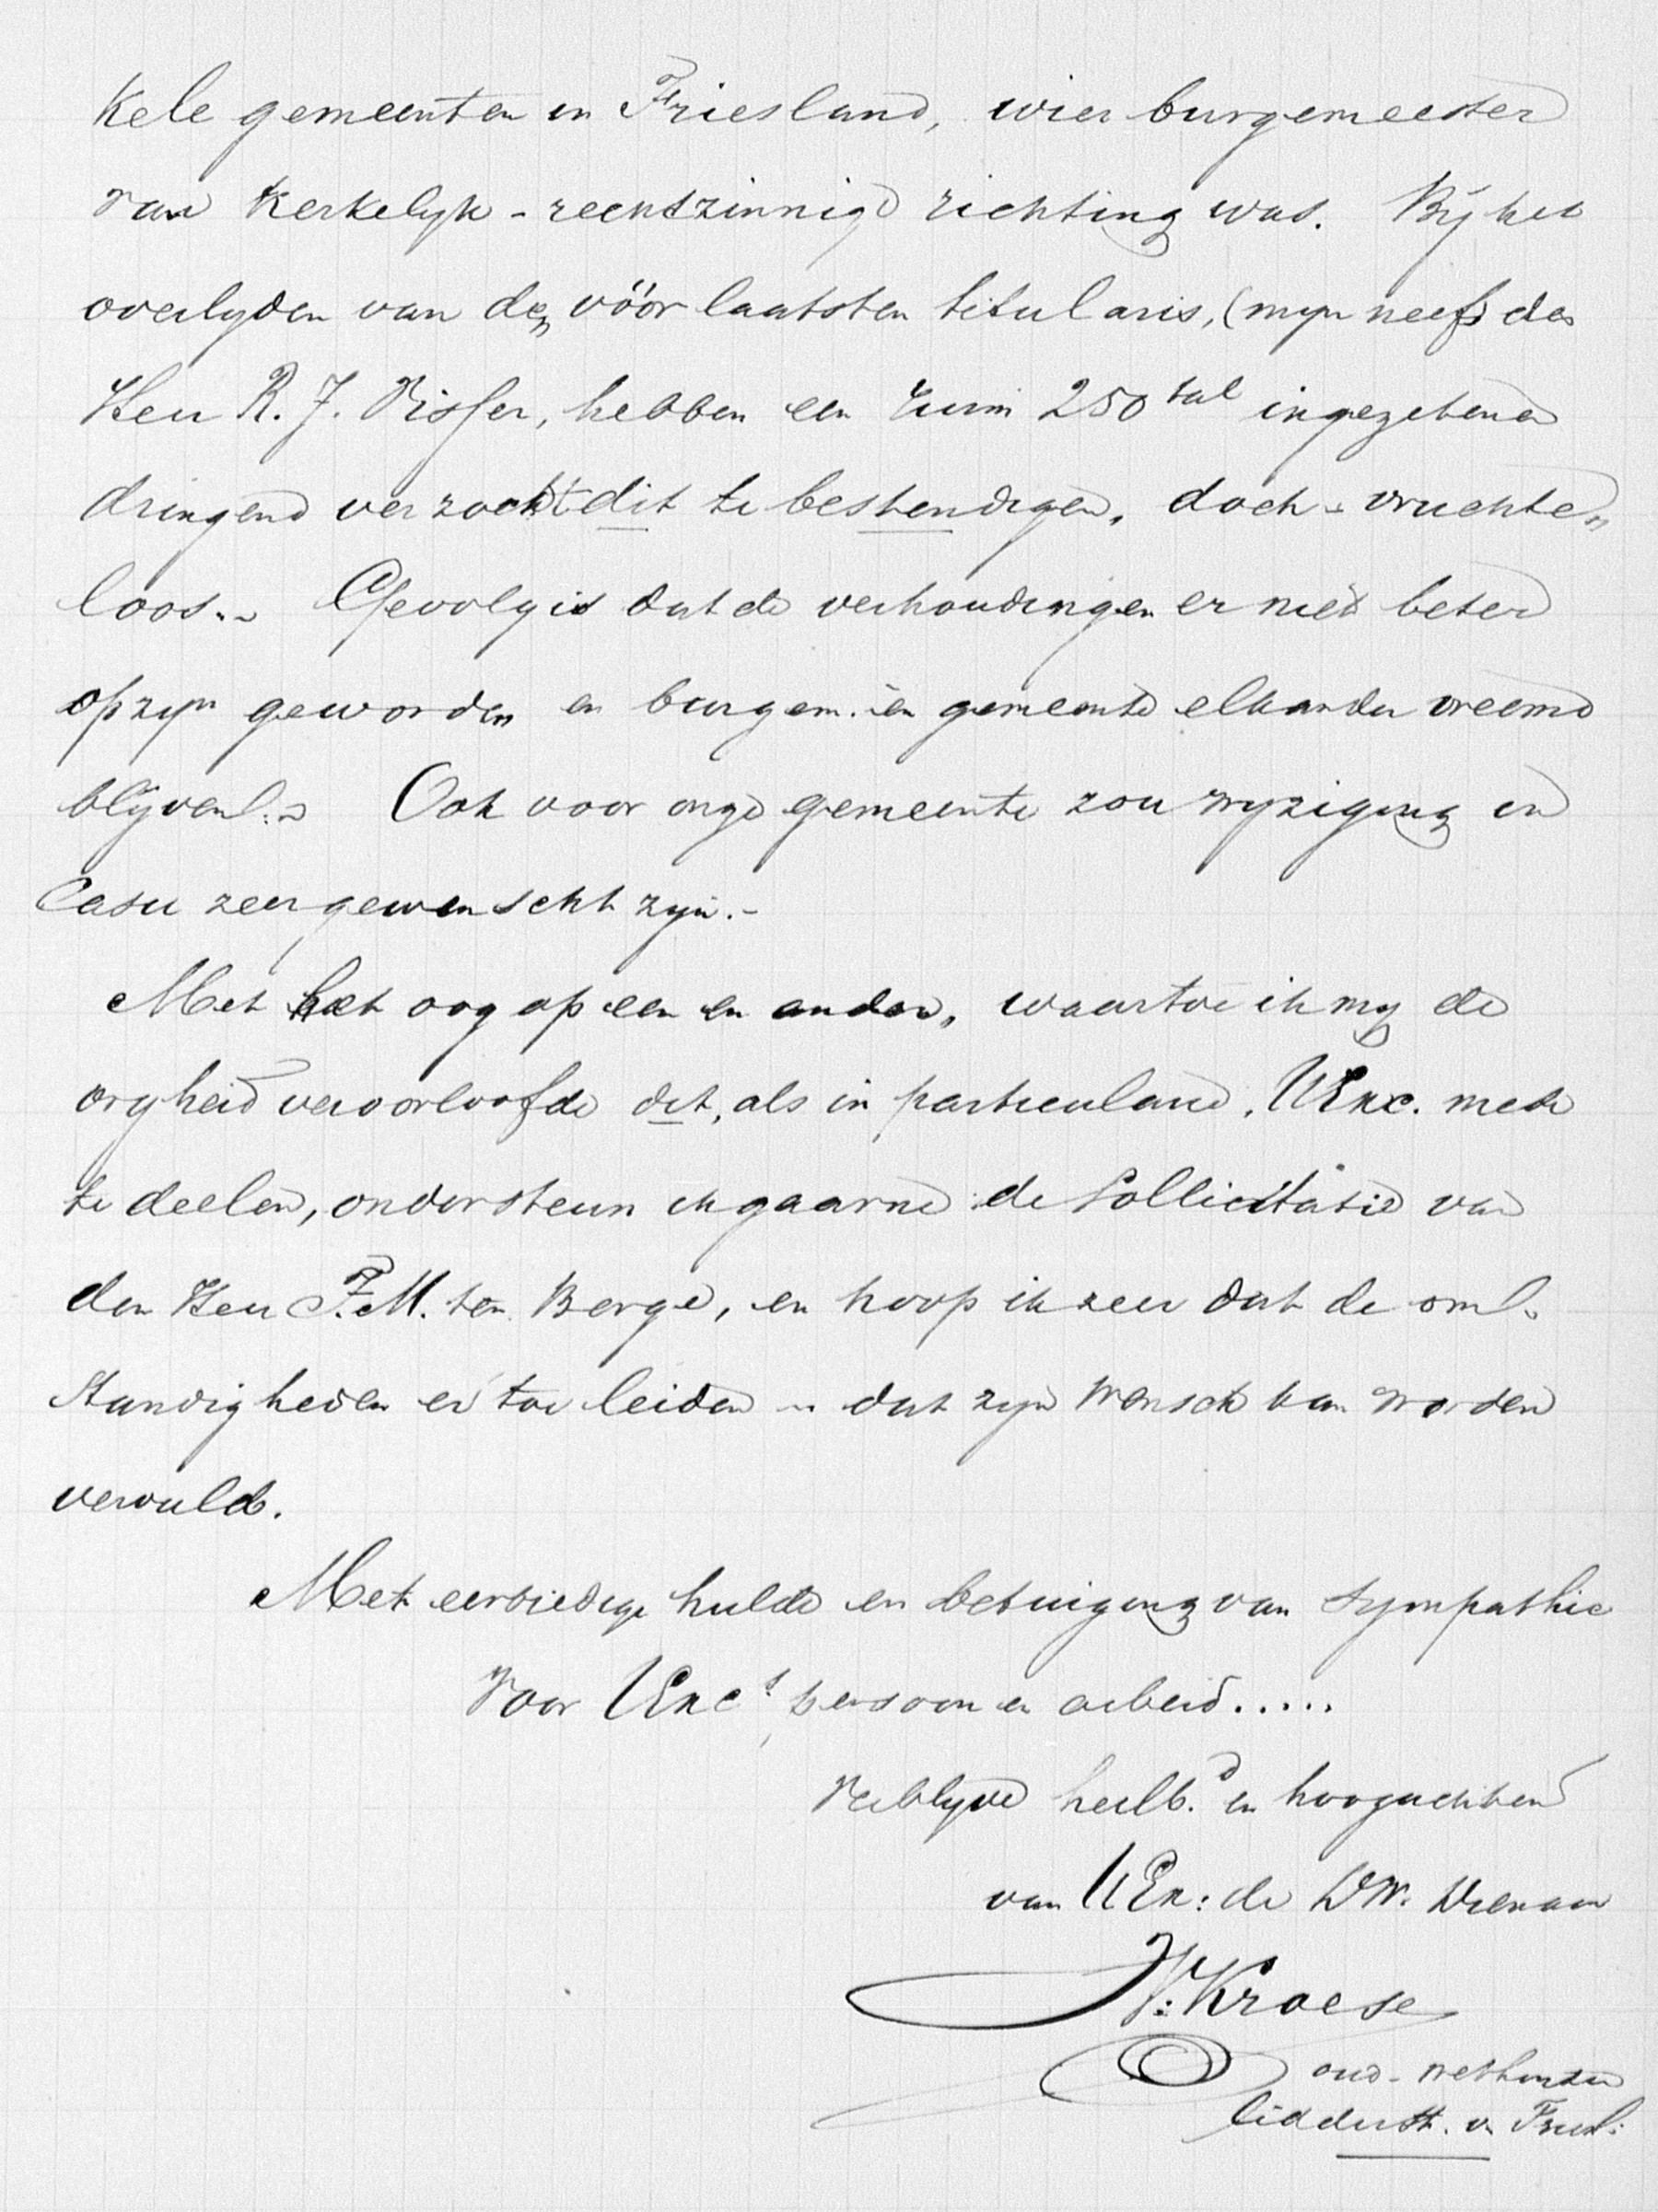 kele gemeenten in Friesland, wier burgemeester
van kerkelyk-rechtzinnige richting was. Bij het
overlyden van den vóór laatsten titularis, (myn neef) den
Heer R. J. Visser, hebben een ruim 250 tal ingezetenen
dringend verzocht dit te bestendigen, doch - vruchte„
loos. - Gevolg is dat de verhoudingen er niet beter
op zyn geworden en burgem. en gemeente elkander vreemd
blijven. - Ook voor onze gemeente zou wyziging in
Casu zeer gewenscht zyn. -
Met het oog op een en ander, waartoe ik my de
vryheid veroorloofde dit, als in particulare, UExc. mede
te deelen, ondersteun ik gaarne de Sollicitatie van
den Heer F. M. ten Berge, en hoop ik zeer dat de om-
standigheden er toe leiden - dat zyn wensch kan worden
vervuld.
Met eerbiedige hulde en betuiging van Sympathie
voor UExc's persoon en arbeid.....
Verblyve heilb.d en hoogachtend
van UEx: de DW. Dienaar
Kroese
oud-wethouder
lid der St. v. Friesl: